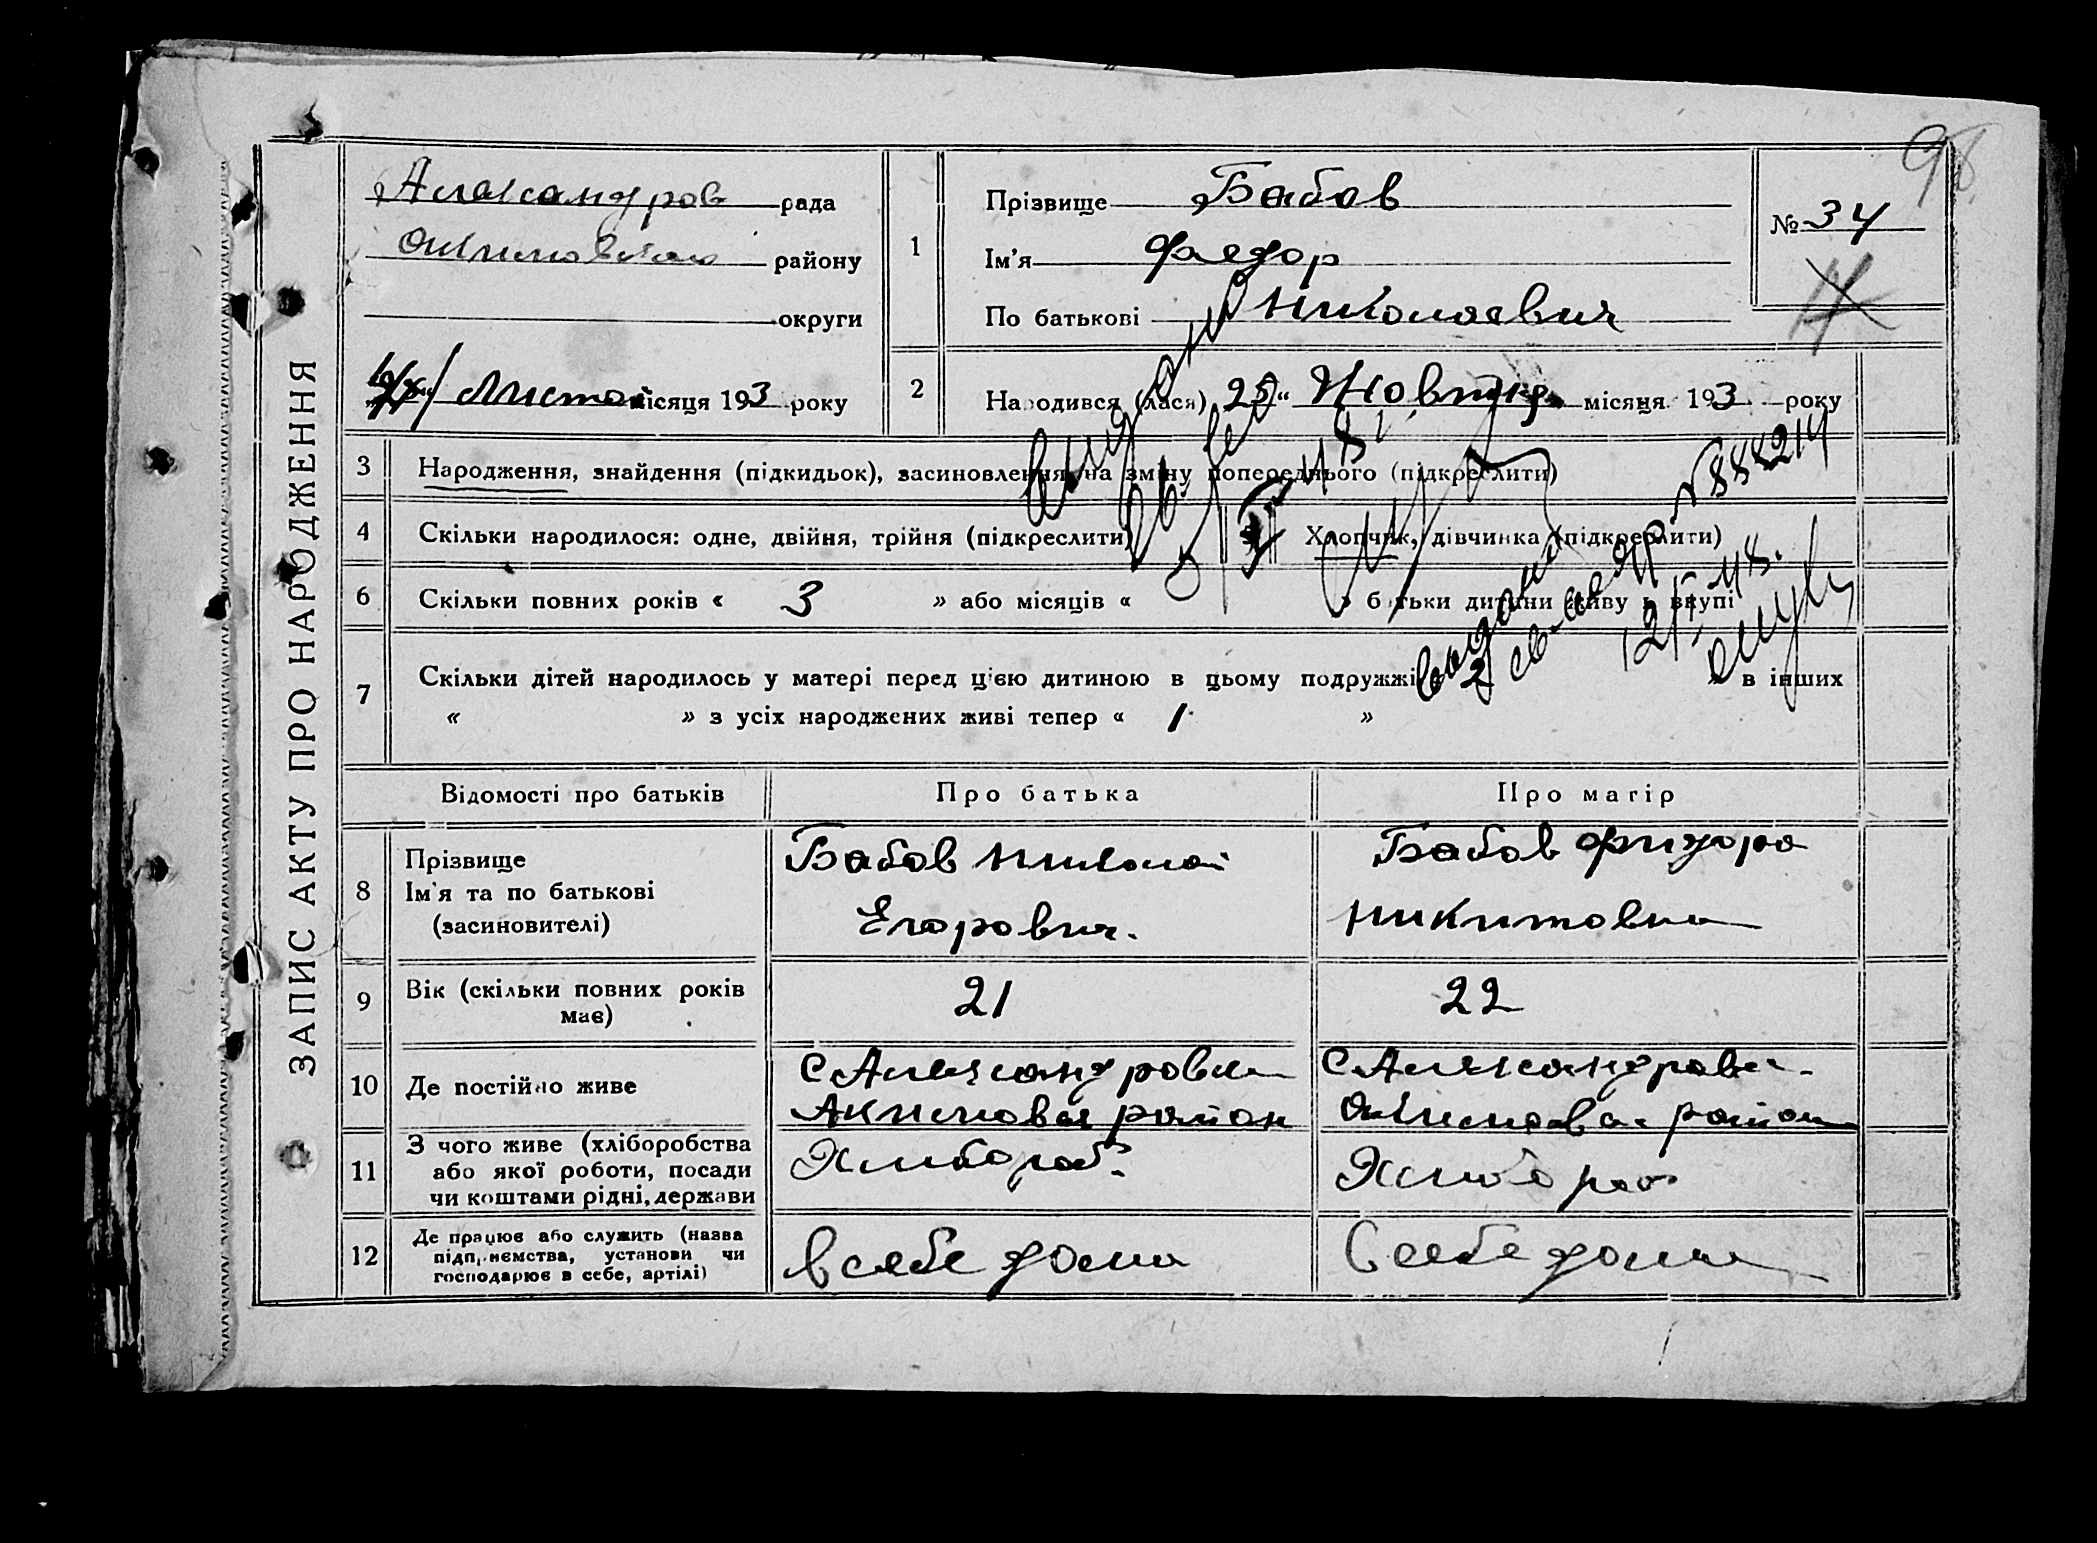 98
ЗАПИС АКТУ ПРО НАРОДЖЕННЯ
Александров рада
району
округи
Листоп місяця 193 3 року
1
Прізвище Бабов
Ім'я Федор
По батькові Николаевич
№ 34
2
Народився (лася) 25 “ Жовтня місяця 193 3 року
3 Народження, знайдення (підкидьок), засиновлення, на зміну попереднього (підкреслити)
4 Скільки народилося: одне, двійня, трійня (підкреслити)
5 Хлопчик, дівчинка (підкреслити)
6 Скільки повних років « 3 » або місяців « » батьки дитини живуть вкупі
7 Скільки дітей народилось у матері перед цією дитиною в цьому подружжі « 2 » в інших
« » з усіх народжених живі тепер « 1 »
№ 888214
12/V-48.
Відомості про батьків Про батька Про матір
8 Прізвище
Ім'я та по батькові
(засиновителі)
Бабов Николай
Егорович.
Бабов
Никитовна
9 Вік (скільки повних років
має)
21
22
10 Де постійно живе
С Александровка
Акимовск район
С Александровк.
район
11 З чого живе (хліборобства
або якої роботи, посади
чи коштами рідні, держави
Хлибороб.
Хлибороб
12 Де працює або служить (назва
підприємства, установи чи
господарює в себе, артілі)
В себе дома
В себе дома